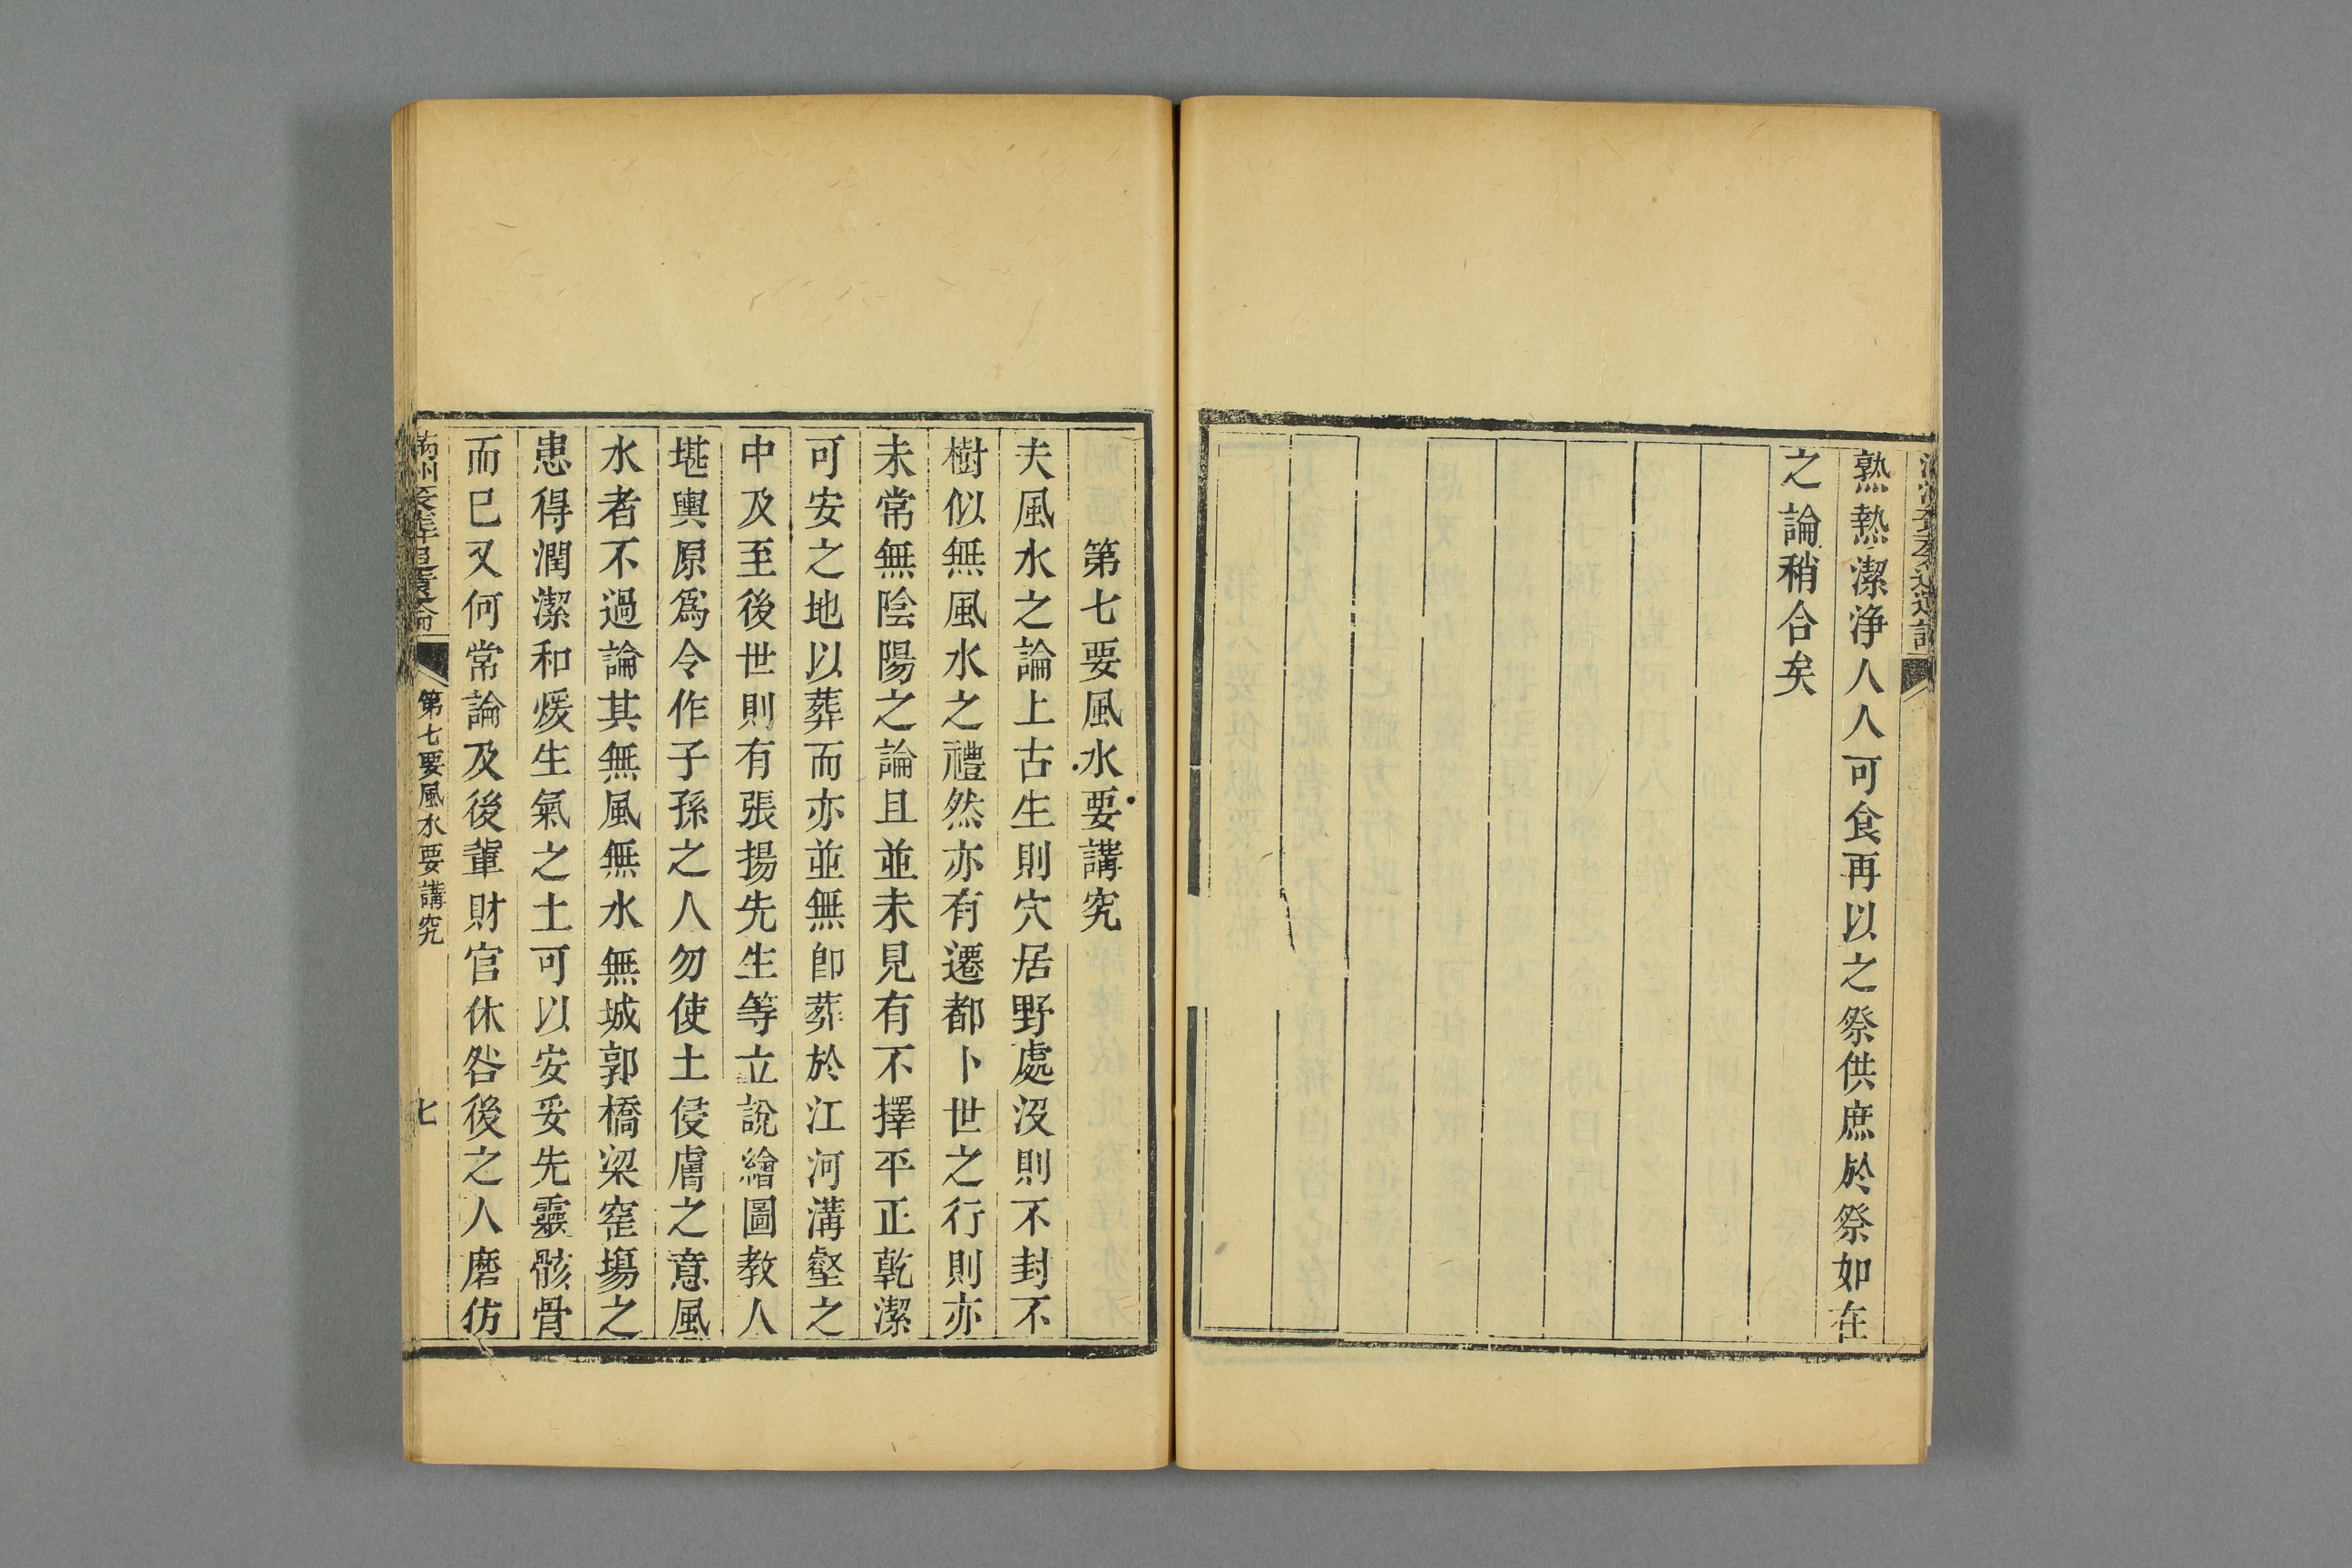 熟熱潔浄人人可食再以之祭供庶於祭如在
之論稍合矣
第七要風水要講究
夫風水之論上古生則穴居野處沒則不封不
樹似無風水之禮然亦有遷都卜世之行則亦
未常無陰陽之論且並未見有不擇平正乾潔
可安之地以葬而亦並無卽葬於江河溝壑之
中及至後世則有張揚先生等立說繪圖教人
堪輿原爲令作子孫之人勿使土侵膚之意風
水者不過論其無風無水無城郭橋梁窑塲之
患得潤潔和煖生氣之土可以安妥先靈骸骨
而已又何常論及後輩財官休咎後之人磨仿
第七要風水要講究
七